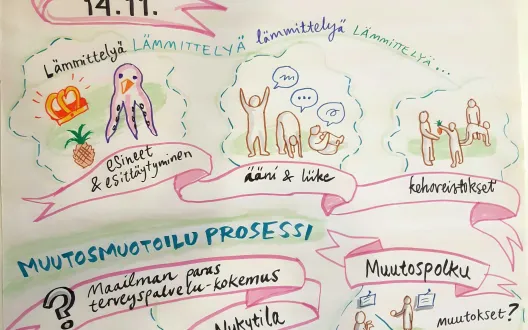 14.11.
Lämmittelyä LÄMMITTELYÄ lämmittelyä LÄMMITTELYÄ...
esineet
& esittäytyminen
ääni & liike
kehoreistokset
MUUTOSMUOTOILU PROSESSI
? Maailman paras
terveyspalvelu-kokemus
Muutospolku
Nykytila
muutokset?